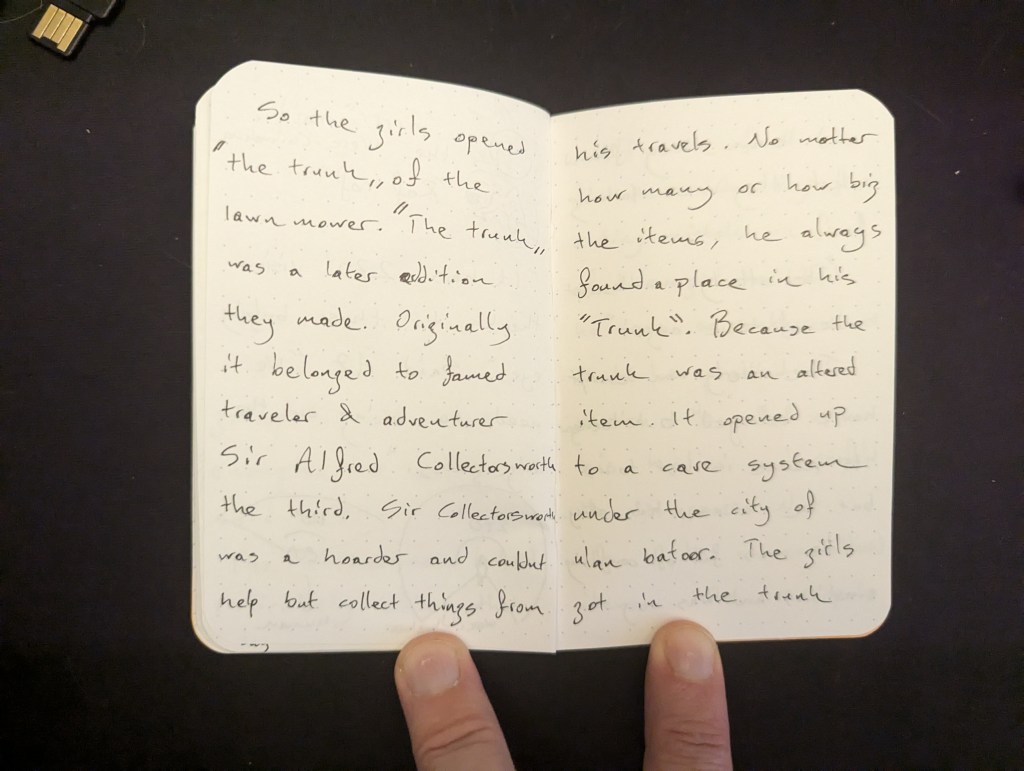 So the girls opened
"the trunk„ of the
lawn mower. "The trunk„
was a later addition
they made. Originally
it belonged to famed
traveler & adventurer
Sir Alfred Collectorsworth
the third. Sir Collectorsworth
was a hoarder and couldnt
help but collect things from
his travels. No matter
how many or how big
the items, he always
found a place in his
"Trunk". Because the
trunk was an altered
item. It opened up
to a cave system
under the city of
ulan bator. The girls
got in the trunk